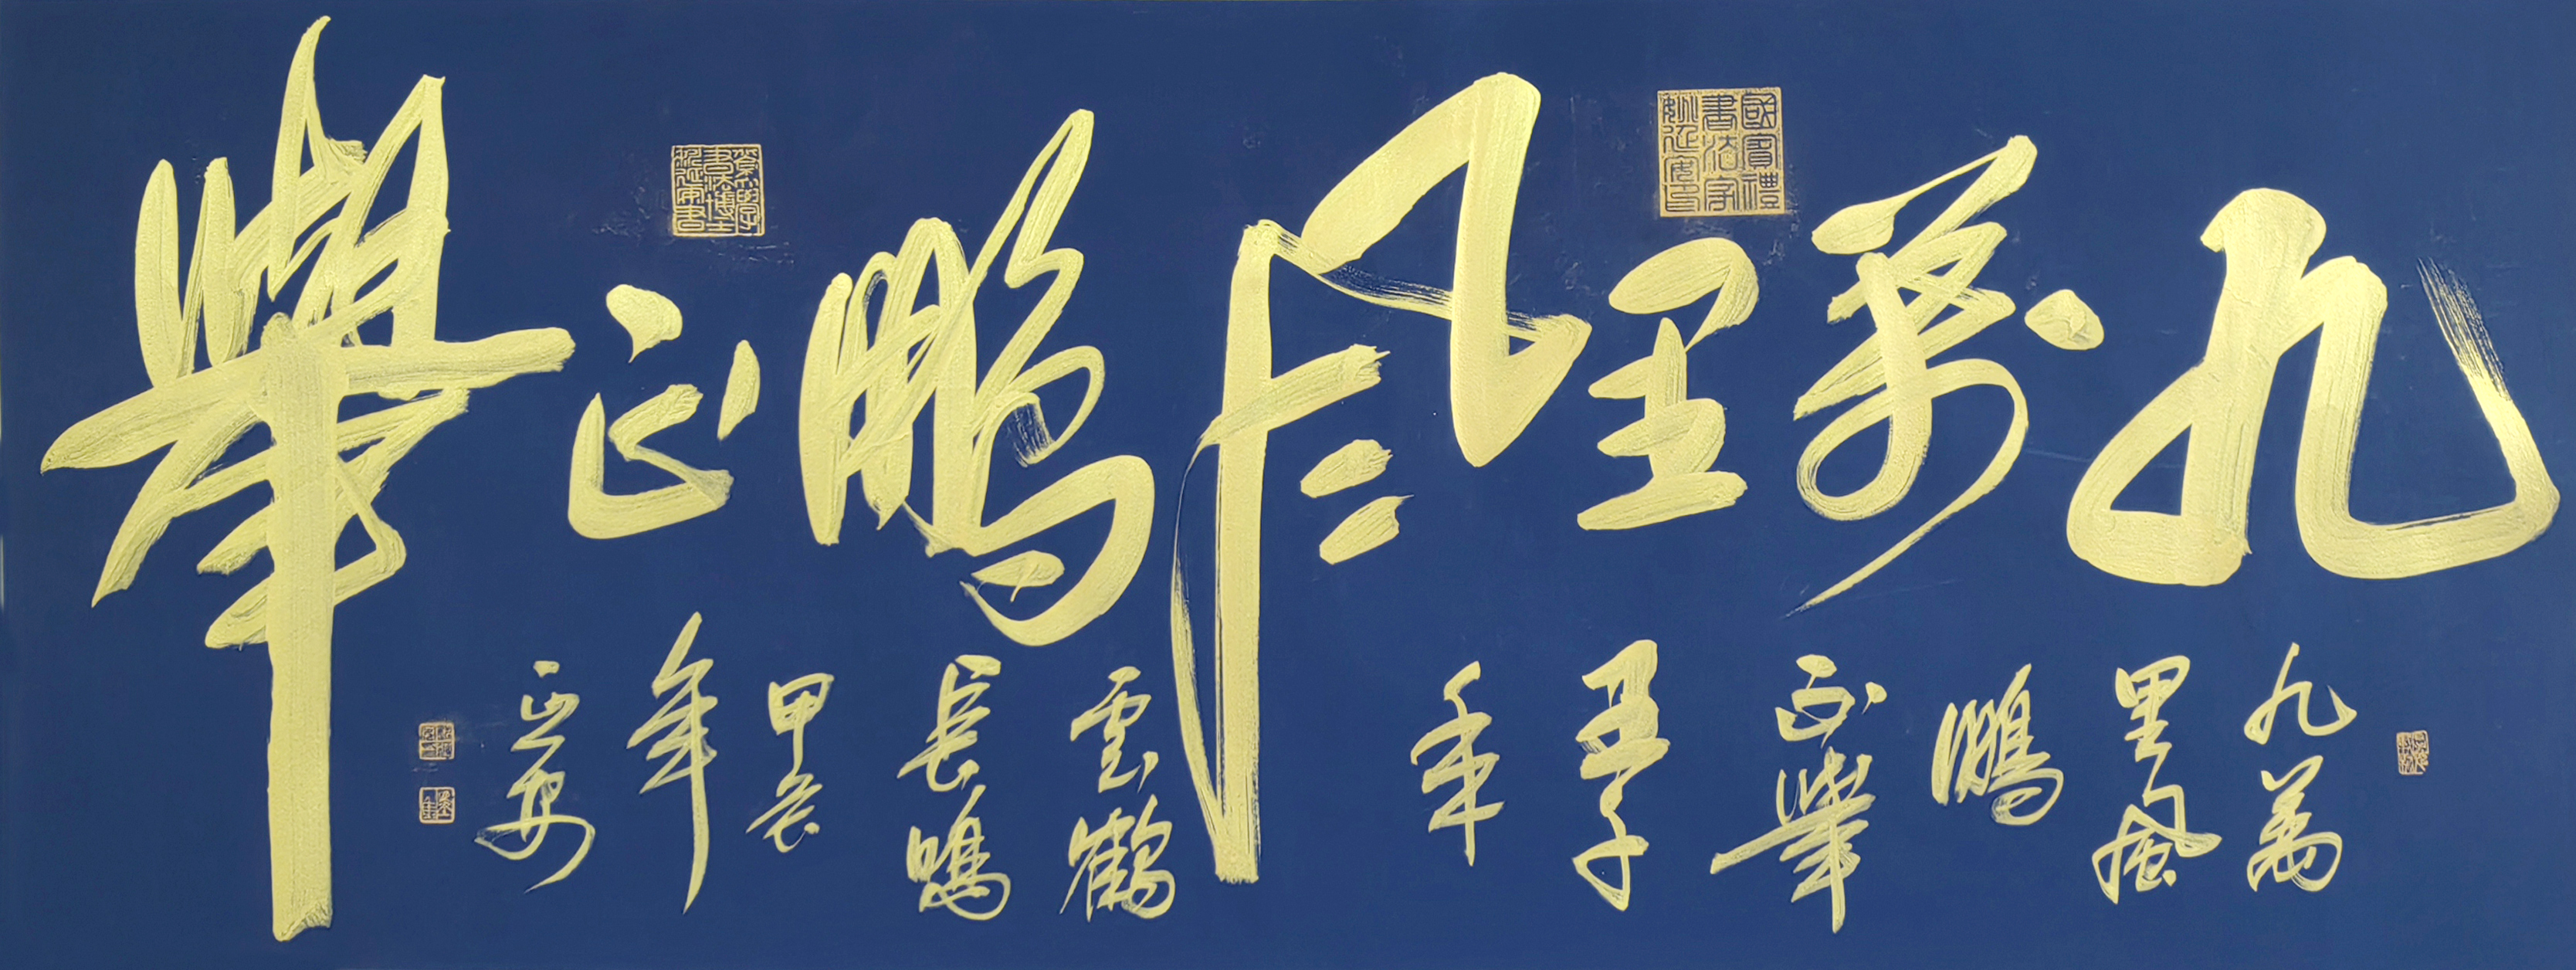 九萬里風鵬正舉
九萬
里風
鵬
正舉
年
雲鶴
長鳴
甲辰
年
延安
國賓禮
書法家
姚延安印